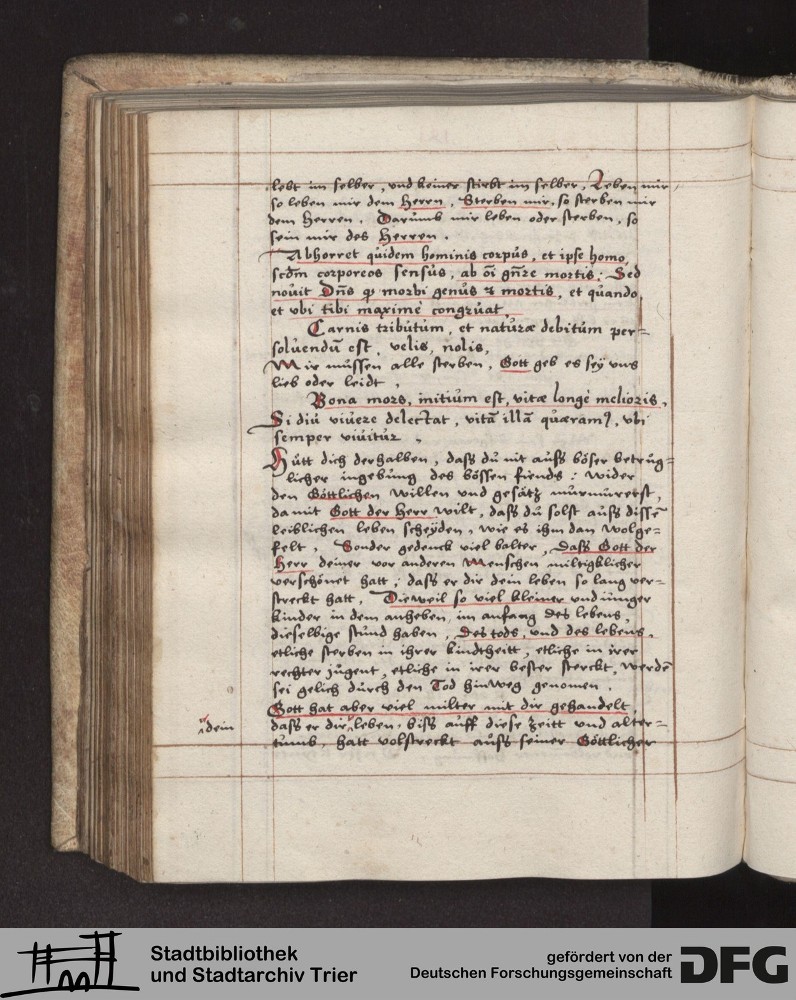 lebt im selber, und keiner stirbt im selber, Leben mir,
so leben mir dem Herrn, Sterben mir, so sterben mir
dem Herren. Darumb mir leben oder sterben, so
sein mir des Herren.
Abhorret quidem hominis corpus, et ipse homo,
scdm̄ corporeos sensus, ab oī gn̄re mortis: Sed
novit Dn̄s qꝫ morbi genus & mortis, et quando,
et ubi tibi maximè congruat.
Carnis tributum, et naturæ debitum per=
solvendū est, velis, nolis,
Mir müssen alle sterben, Gott geb es seÿ uns
lieb oder leidt.
Bona mors, initium est, vitæ longè melioris,
Si diu vivere delectat, vitā illā quæramꝰ, ubi
semper vivitur.
Hütt dich derhalben, dass du nit auss böser betrüg=
licher ingebung des bössen fiends: wider
den Göttlichen willen und gesätz murmurerst,
damit Gott der Herr wilt, dass du solst auss dissē
leiblichen leben scheÿden, wie es ihm dan wolge=
felt. Sonder gedenck viel balter, dass Gott der
Herr deiner vor anderen Menschen miltigklicher
verschönet hatt; dass er dir dein leben so lang ver=
streckt hatt. Dieweil so viel kleiner und iunger
kinder in dem anheben, im anfang des lebens,
dieselbige stund haben, des tods, und des lebens.
etliche sterben in ihrer kindtheitt, etliche in irer
rechter jugent, etliche in irer bester sterckt, werdē
sei gelich durch den Tod hinweg genomen.
Gott hat aber viel milter mit dir gehandelt,
dass er dir leben, biss auff diese zeitt und alter=
dein
tumb, hatt volstreckt auss seiner Göttlicher
Stadtbibliothek
und Stadtarchiv Trier
gefördert von der
Deutschen Forschungsgemeinschaft
DFG